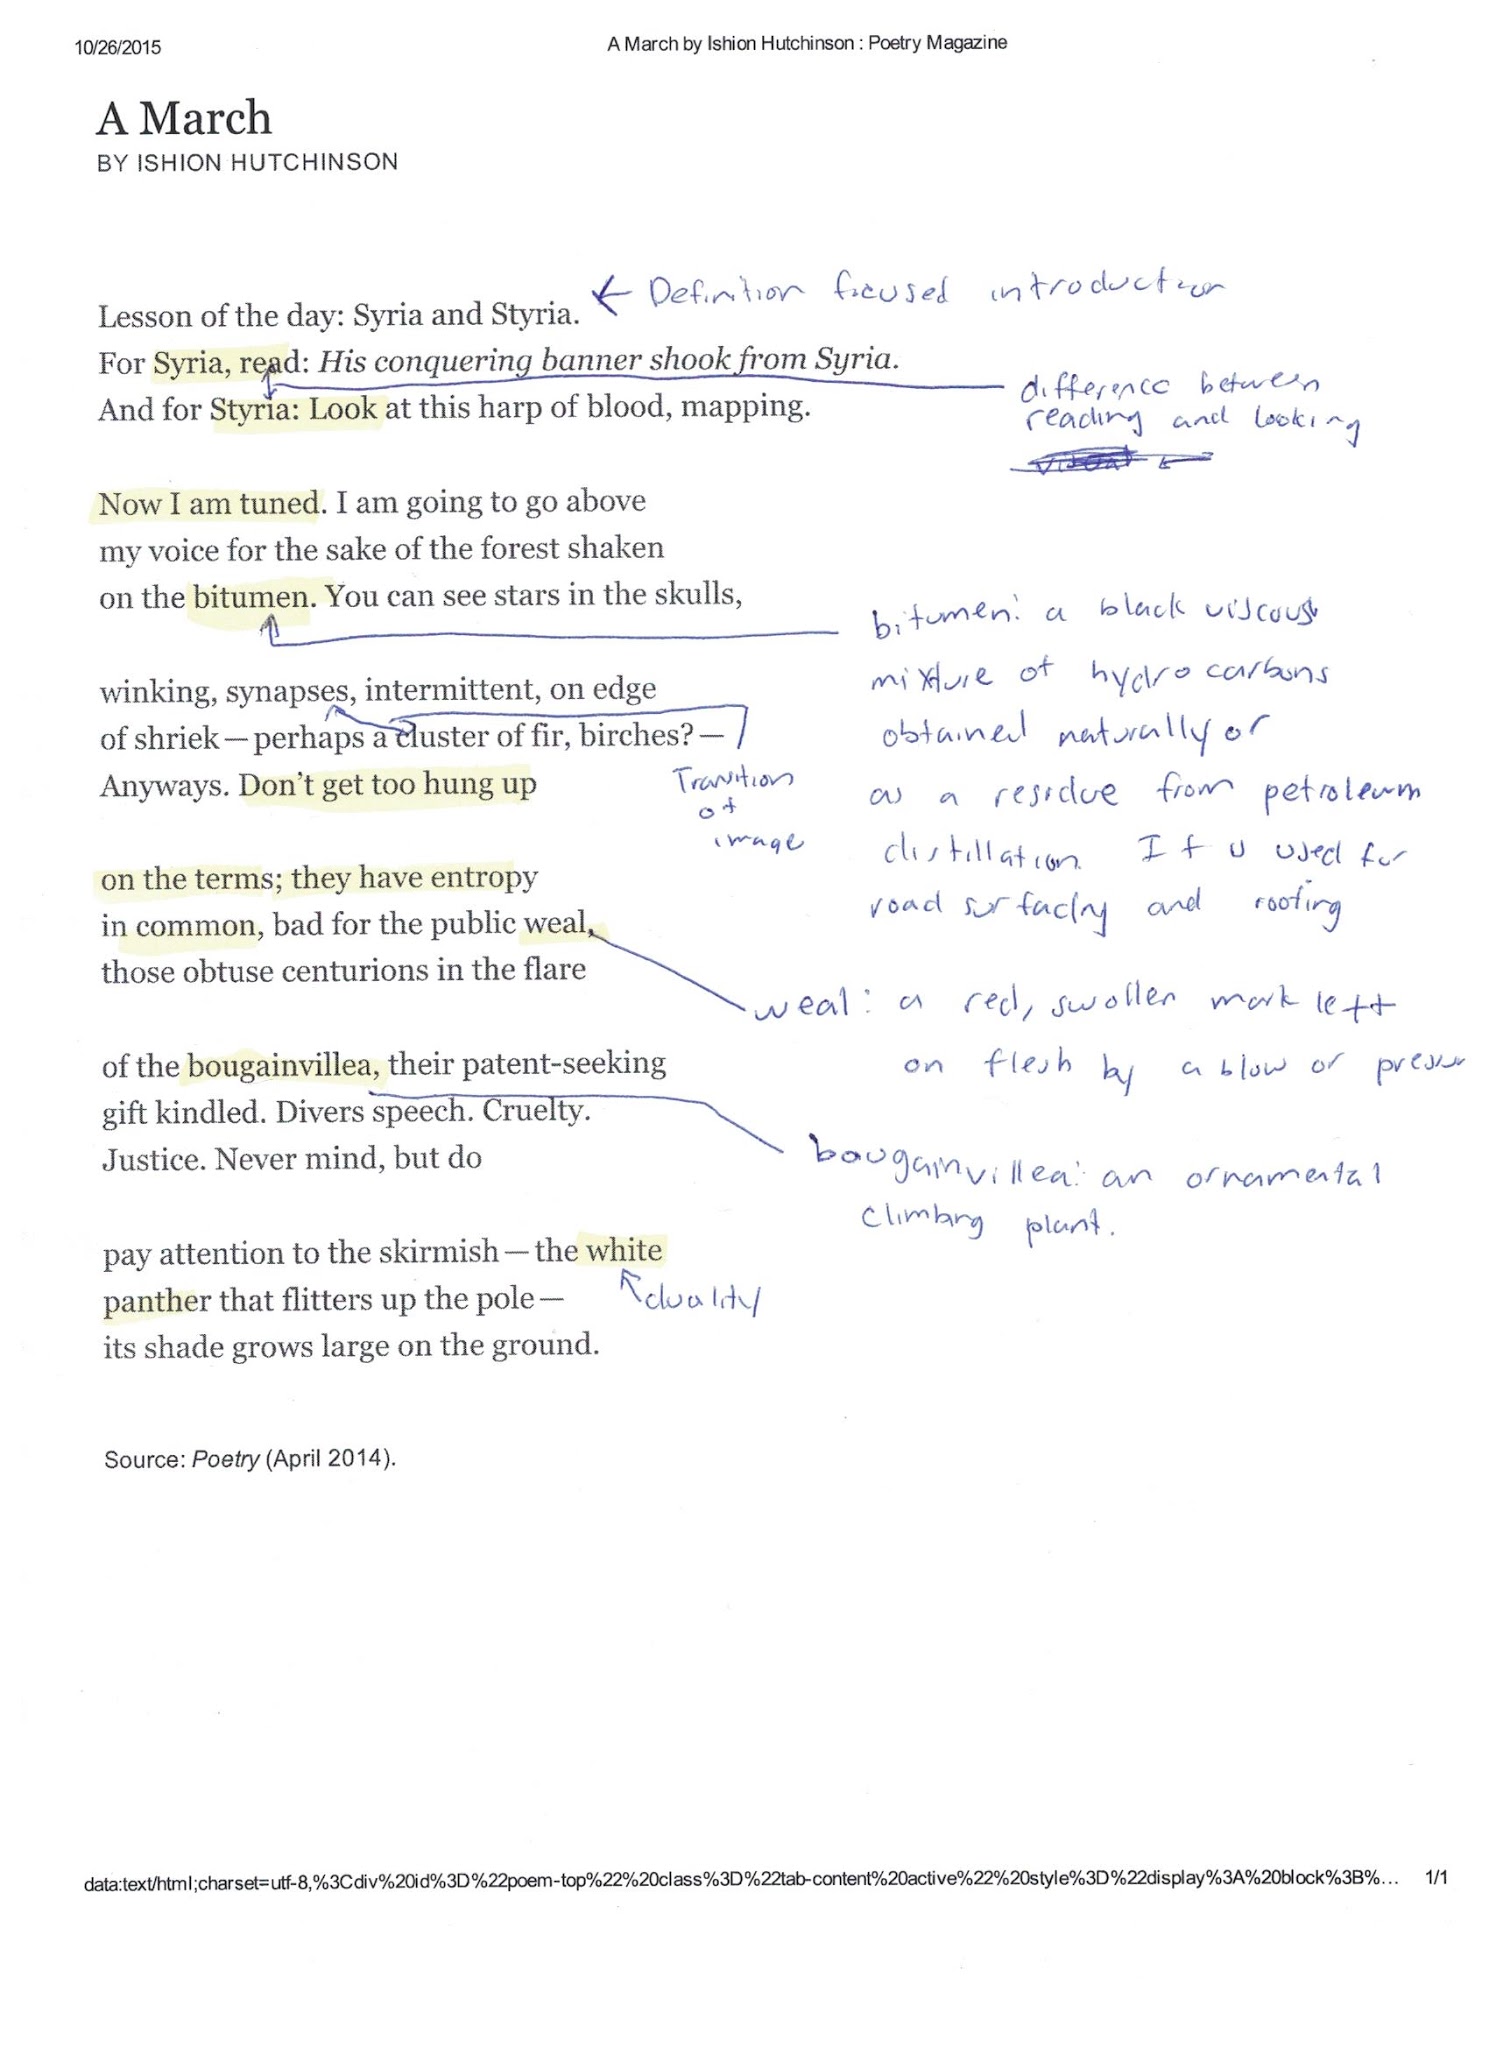 10/26/2015 A March by Ishion Hutchinson : Poetry Magazine
A March
BY ISHION HUTCHINSON
Lesson of the day: Syria and Styria.
← Definition focused introduction
For Syria, read: His conquering banner shook from Syria.
And for Styria: Look at this harp of blood, mapping.
difference between
reading and looking
Now I am tuned. I am going to go above
my voice for the sake of the forest shaken
on the bitumen. You can see stars in the skulls,
bitumen: a black viscous
mixture of hydrocarbons
obtained naturally or
as a residue from petroleum
distillation. It is used for
road surfacing and roofing
winking, synapses, intermittent, on edge
of shriek — perhaps a cluster of fir, birches? —
Anyways. Don't get too hung up
Transition
of
image
on the terms; they have entropy
in common, bad for the public weal,
those obtuse centurions in the flare
weal: a red, swollen mark left
on flesh by a blow or pressur
of the bougainvillea, their patent-seeking
gift kindled. Divers speech. Cruelty.
Justice. Never mind, but do
bougainvillea: an ornamental
climbing plant.
pay attention to the skirmish — the white
panther that flitters up the pole —
its shade grows large on the ground.
duality
Source: Poetry (April 2014).
data:text/html;charset=utf-8,%3Cdiv%20id%3D%22poem-top%22%20class%3D%22tab-content%20active%22%20style%3D%22display%3A%20block%3B%... 1/1